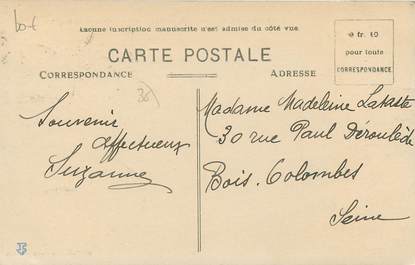 Aucune inscription manuscrite n'est admise du côté vue
CARTE POSTALE
CORRESPONDANCE
ADRESSE
0 fr. 10
pour toute
CORRESPONDANCE
36
Souvenir
affectueux
Suzanne
Madame Madeleine Lataste
30 rue Paul Déroulède
Bois-Colombes
Seine